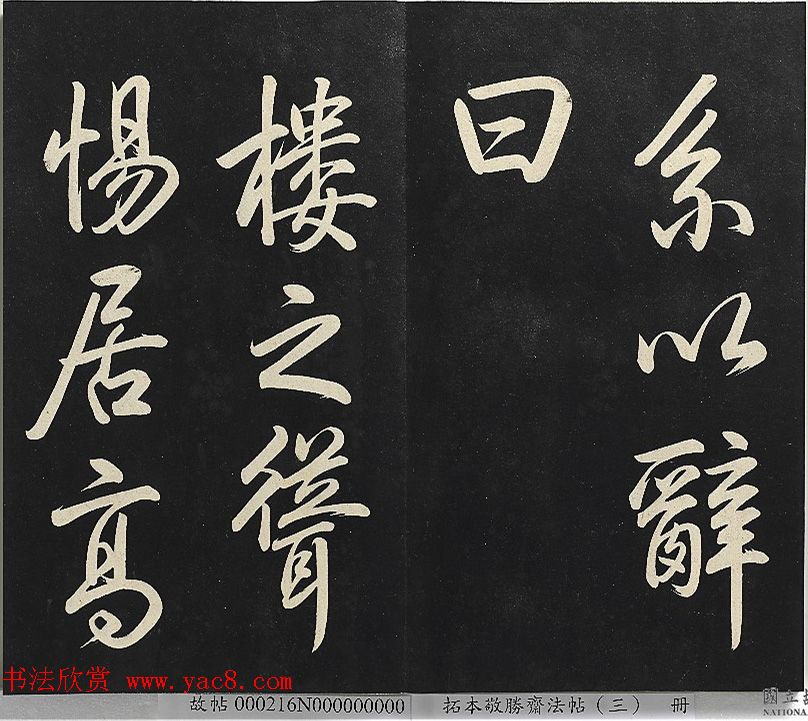 系以辭
曰
樓之聳
惕居高
书法欣赏 www.yac8.com
故帖 000216N000000000
拓本敬勝齋法帖（三） 册
國立
NATIONA